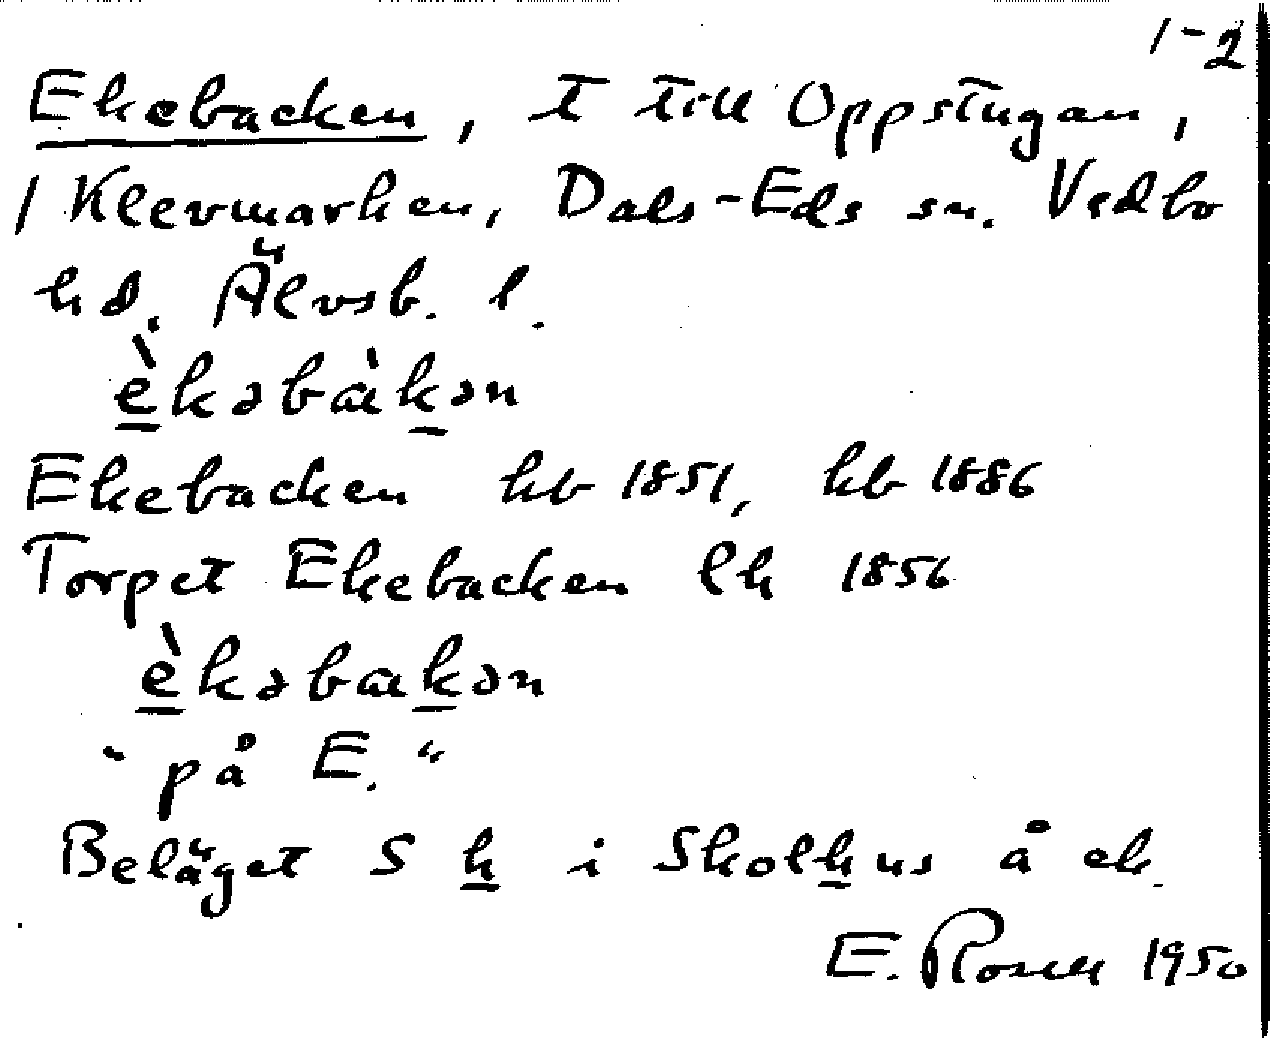 1-2
Ekebacken, T till Oppstugan,
/ Klevmarken, Dals-Eds sn. Vedbo
hd. Älvsb. l.
èkəbàkən
Ekebacken hb 1851, kb 1886
Torpet Ekebacken lh 1856
èkəbakən
"på E."
Beläget S h i Skolhus å ek.
E. 1950